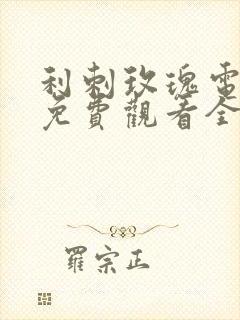 利刺玫瑰電
免費觀看全
羅宗正